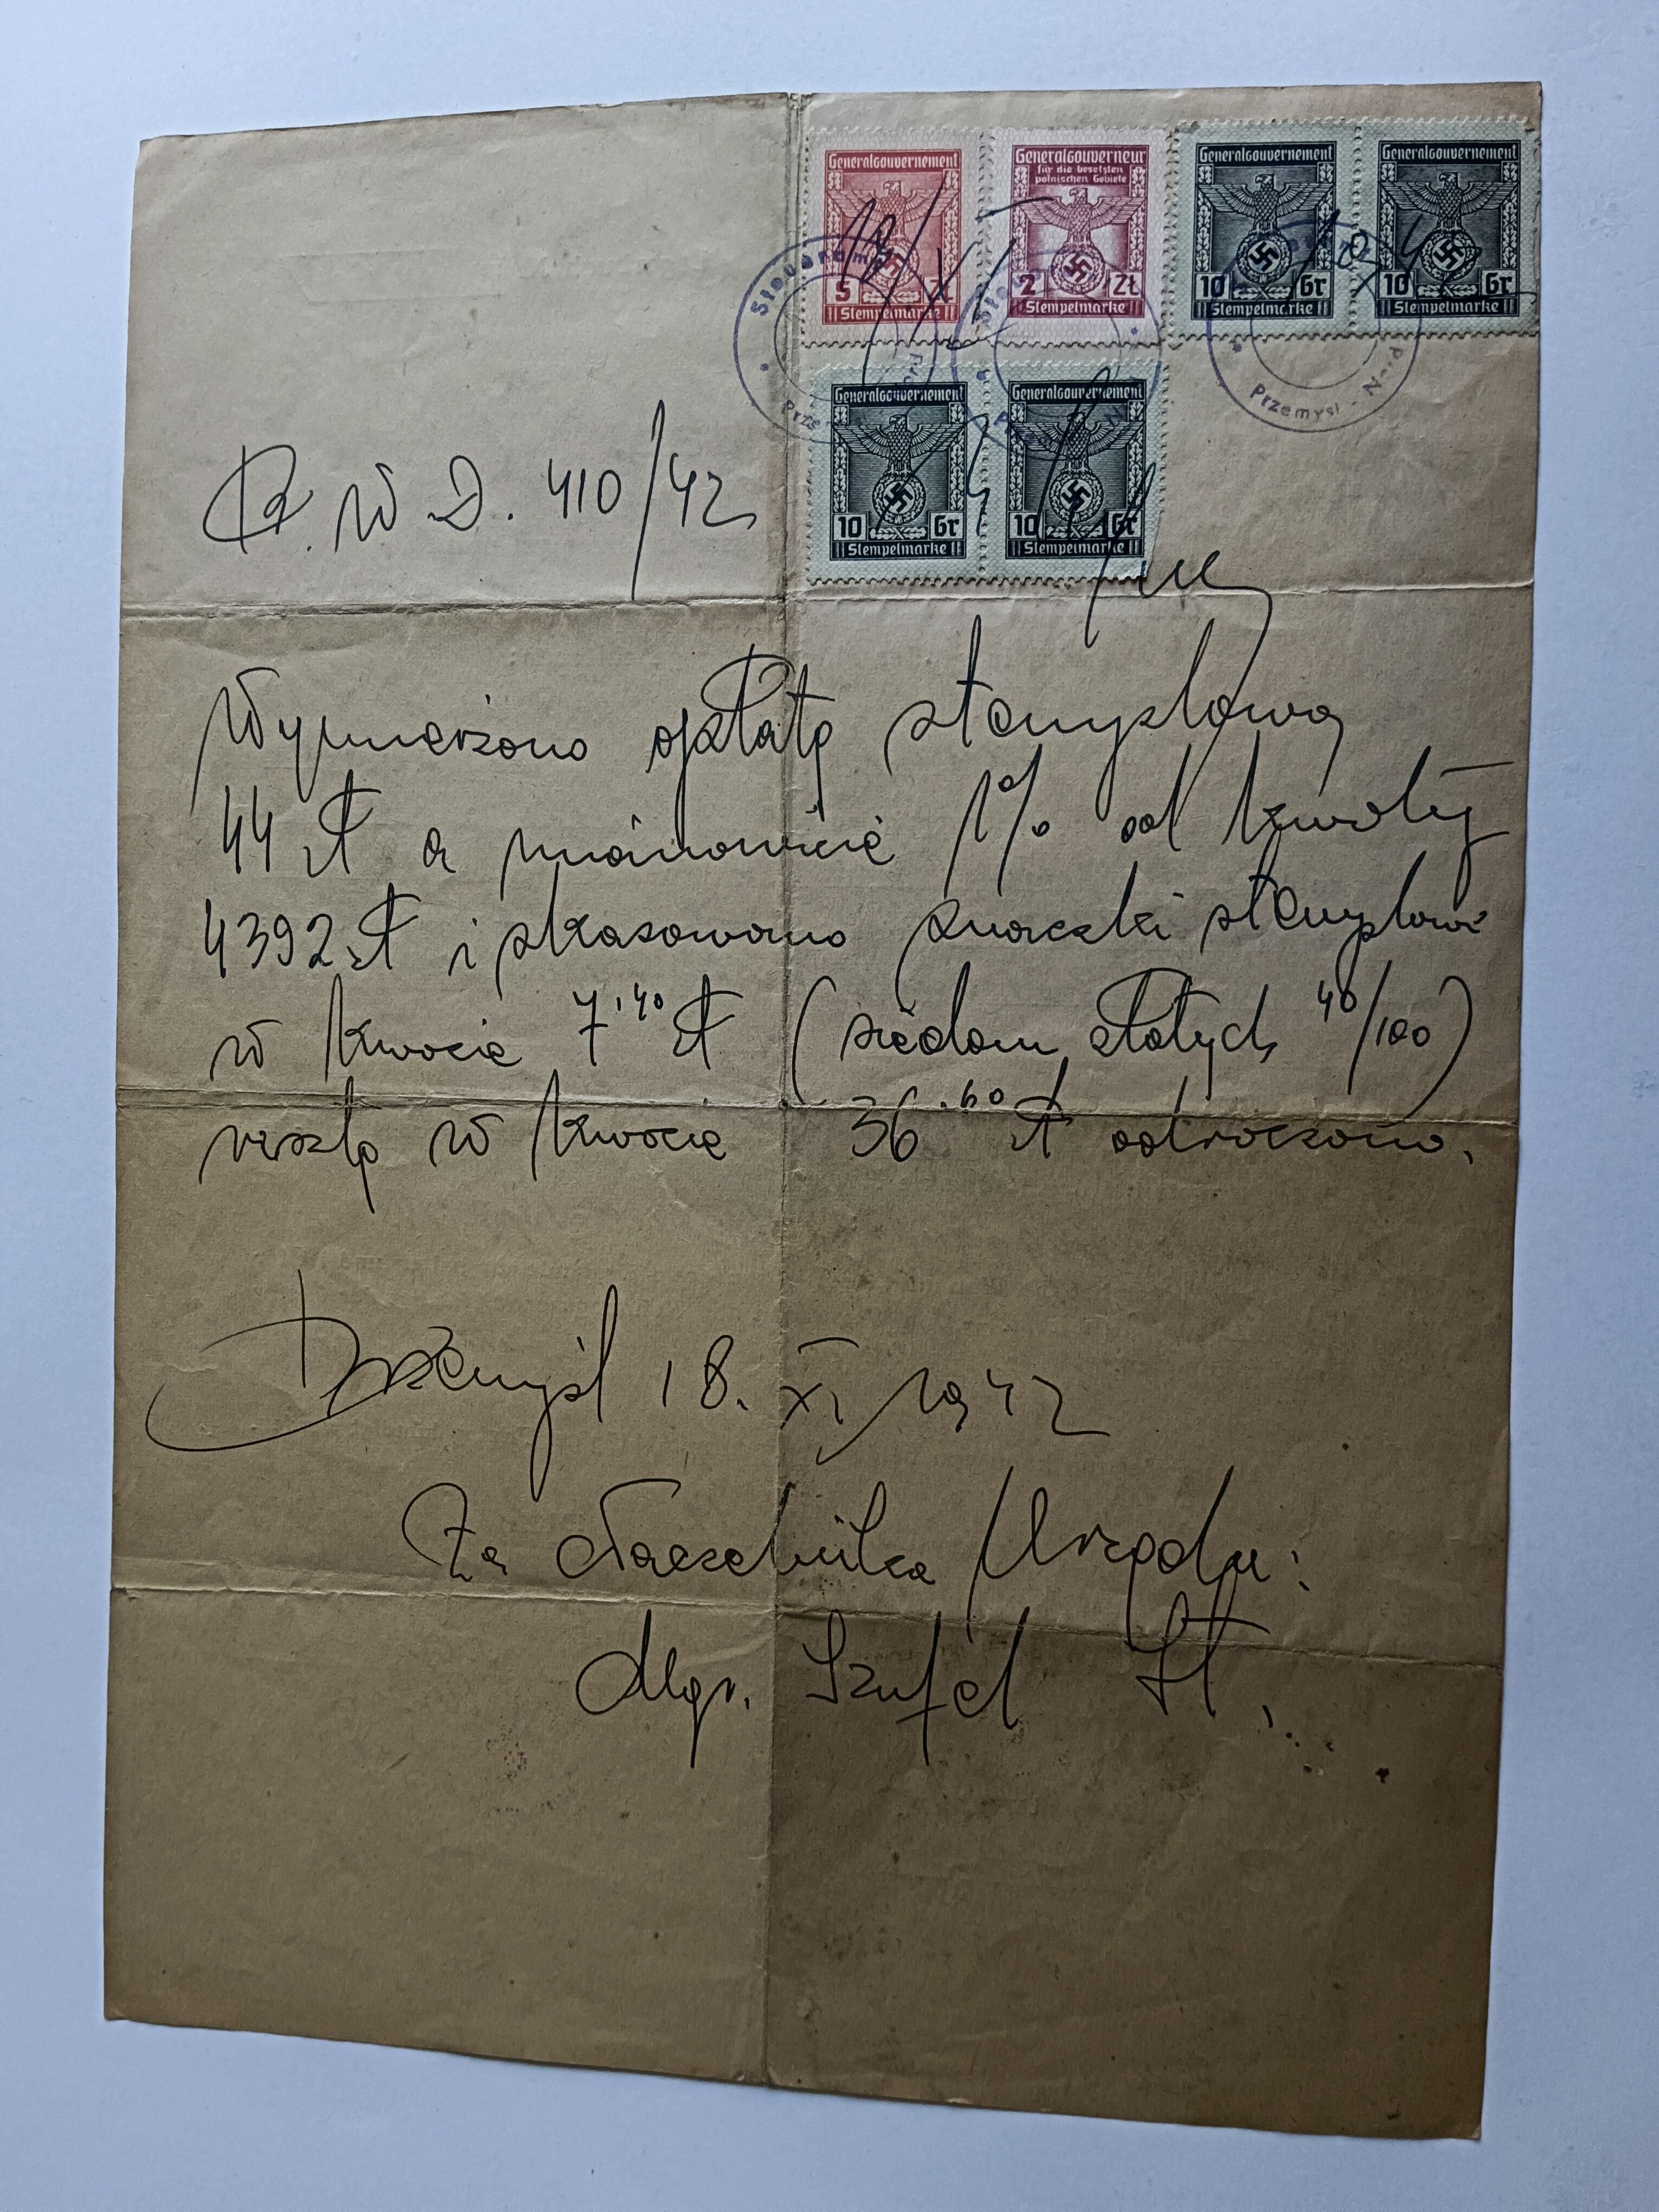 Generalgouvernement
5 Zł
Stempelmarke
Generalgouverneur
für die besetzten
polnischen Gebiete
2 Zł
Stempelmarke
Generalgouvernement
10 Gr
Stempelmarke
Generalgouvernement
10 Gr
Stempelmarke
Przemysl - Nord
Generalgouvernement
10 Gr
Stempelmarke
Generalgouvernement
10 Gr
Stempelmarke
R. W D. 410/42
Wymierzono opłatę stemplową
44 zł a mianowicie 1% od kwoty
4392 zł i skasowano znaczki stemplowe
w kwocie 7.40 zł (siedem złotych 40/100)
resztę w kwocie 36.60 zł odroczono.
Przemyśl 18. XI 1942
Za Naczelnika Urzędu:
Mgr. Szufel St.